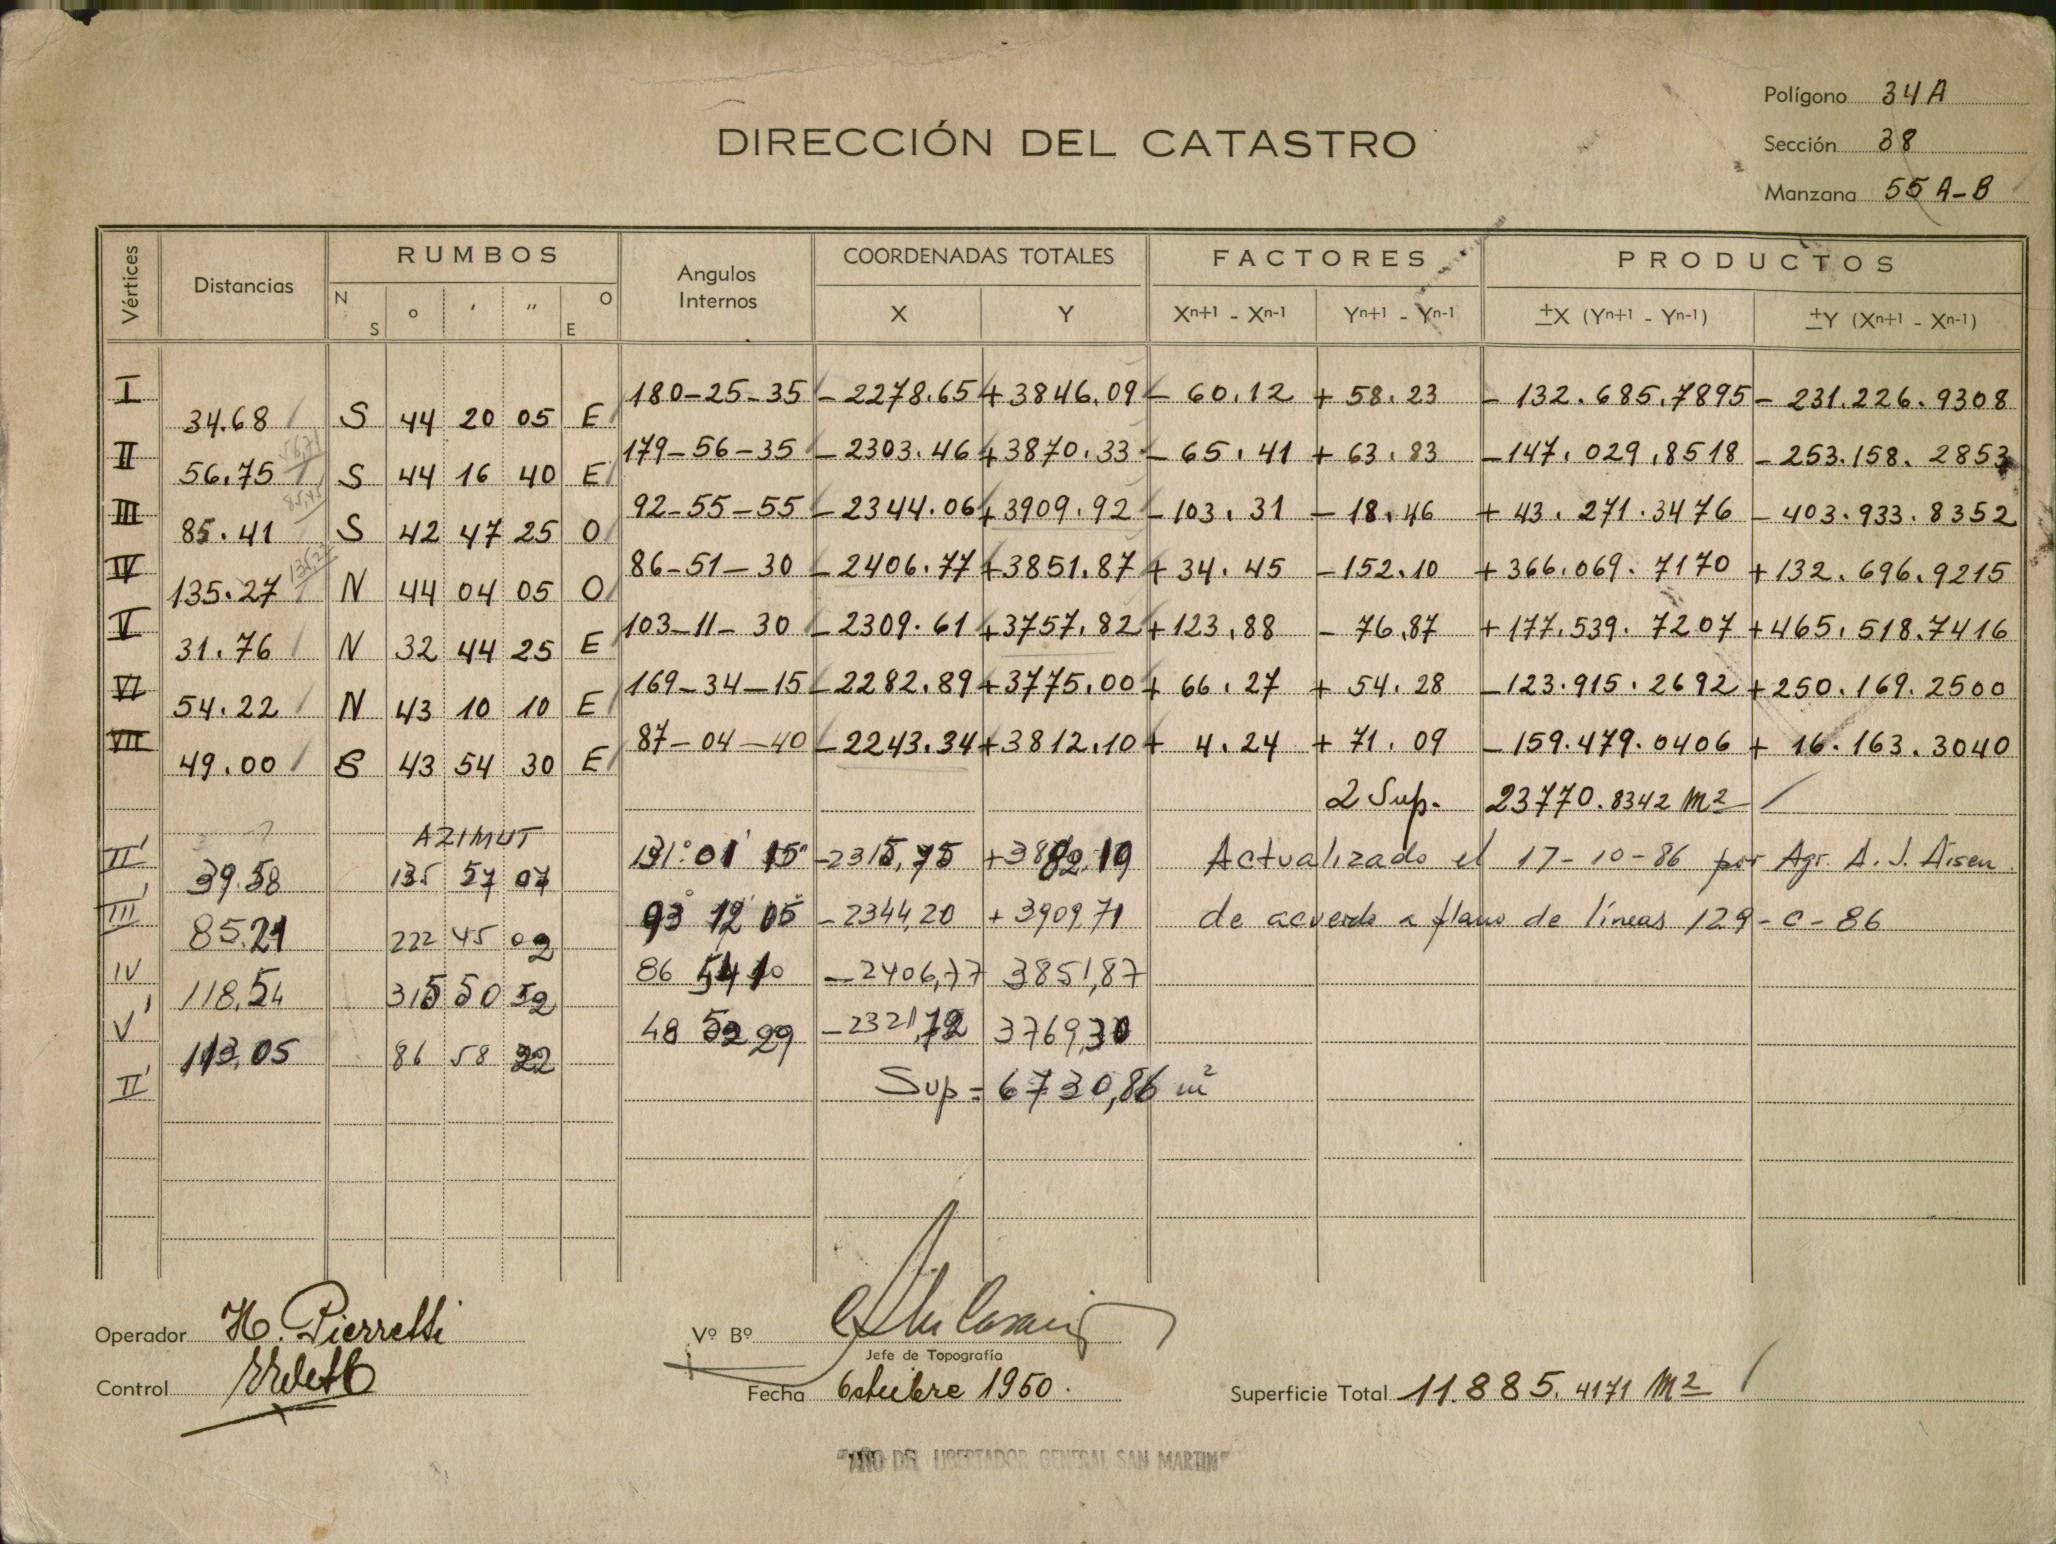 Polígono 34A
Sección 38
Manzana 55 A-B
DIRECCIÓN DEL CATASTRO
Vértices Distancias RUMBOS Angulos Internos COORDENADAS TOTALES FACTORES PRODUCTOS
N S ° ' " O E X Y Xn+1 - Xn-1 Yn+1 - Yn-1 ±X (Yn+1 - Yn-1) ±Y (Xn+1 - Xn-1)
I 180-25-35 -2278.65 +3846.09 - 60.12 + 58.23 - 132.685.7895 - 231.226.9308
34.68 S 44 20 05 E
II 179-56-35 -2303.46 +3870.33 - 65.41 + 63.83 -147.029.8518 - 253.158.2853
56.75 S 44 16 40 E
III 92-55-55 -2344.06 +3909.92 -103.31 - 18.46 + 43.271.3476 - 403.933.8352
85.41 S 42 47 25 O
IV 86-51-30 -2406.77 +3851.87 + 34.45 -152.10 +366.069.7170 +132.696.9215
135.27 N 44 04 05 O
V 103-11-30 -2309.61 +3757.82 +123.88 - 76.87 +177.539.7207 +465.518.7416
31.76 N 32 44 25 E
VI 169-34-15 -2282.89 +3775.00 + 66.27 + 54.28 -123.915.2692 +250.169.2500
54.22 N 43 10 10 E
VII 87-04-40 -2243.34 +3812.10 + 4.24 + 71.09 -159.479.0406 + 16.163.3040
49.00 S 43 54 30 E
2 Sup. 23770.8342 m2
AZIMUT
II' 131° 01' 15" -2315,75 +3882.19 Actualizado el 17-10-86 por Agr. A. J. Aisen
39.58 135 57 07
III' 93° 12' 05" -2344,20 + 3909,71 de acuerdo a plano de líneas 129-C-86
85.21 222 45 02
IV 86 54 10 -2406,77 3851,87
118,54 315 50 52
V' 48 52 29 -2321,72 3769,30
113,05 86 58 22
II' Sup = 6730,86 m²
Operador H. Pierretti
Vº Bº
Jefe de Topografía
Control
Fecha Octubre 1950.
Superficie Total 11.885.4171 m2
"AÑO DEL LIBERTADOR GENERAL SAN MARTIN"